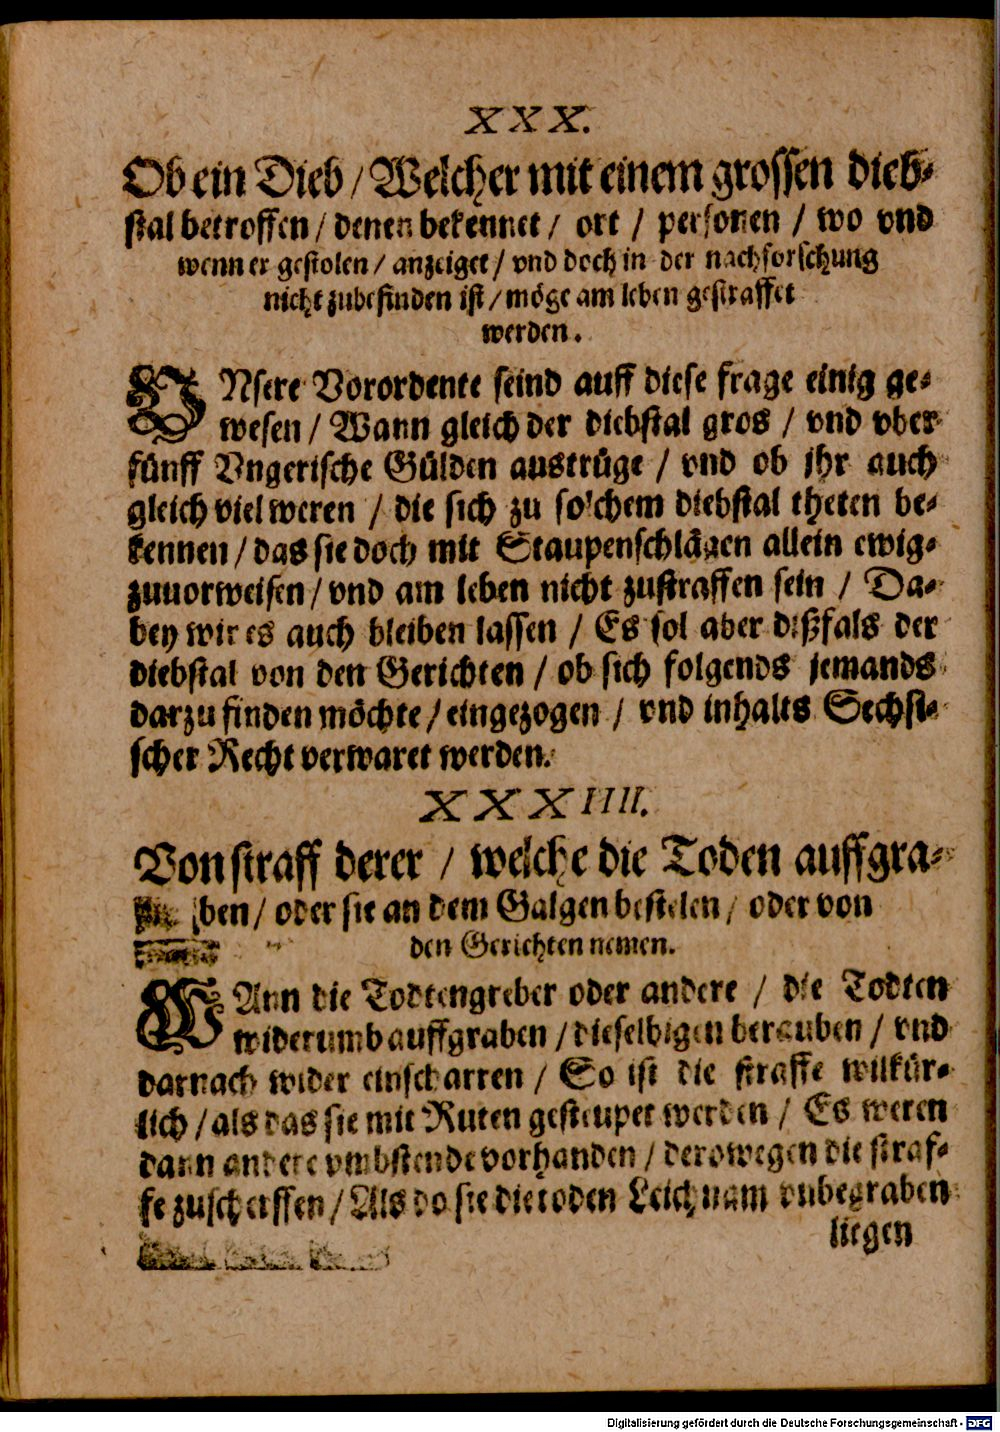 XXX.
Ob ein Dieb / Welcher mit einem grossen dieb-
stal betroffen / denen bekennet / ort / personen / wo vnd
wenn er gestolen / anzeiget / vnd doch in der nachforschung
nicht zubefinden ist / möge am leben gestraffet
werden.
VNsere Vorordente seind auff diese frage einig ge-
wesen / Wann gleich der diebstal gros / vnd vber
fünff Vngerische Gülden austrüge / vnd ob jhr auch
gleich viel weren / die sich zu solchem diebstal theten be-
kennen / das sie doch mit Staupenschlägen allein ewig-
zuuorweisen / vnd am leben nicht zustraffen sein / Da-
bey wir es auch bleiben lassen / Es sol aber dißfals der
diebstal von den Gerichten / ob sich folgends jemands
darzu finden möchte / eingezogen / vnd inhalts Sechsi-
scher Recht verwaret werden.
XXXIIII.
Von straff derer / welche die Toden auffgra-
ben / oder sie an dem Galgen bestelen / oder von
den Gerichten nemen.
WAnn die Todtengreber oder andere / die Todten
widerumb auffgraben / dieselbigen berauben / vnd
darnach wider einscharren / So ist die straffe wilkür-
lich / als das sie mit Ruten gesteupet werden / Es weren
dann andere vmbstende vorhanden / derowegen die straf-
fe zuscherffen / Als do sie die toden Leichnam vnbegraben
liegen
Digitalisierung gefördert durch die Deutsche Forschungsgemeinschaft - DFG